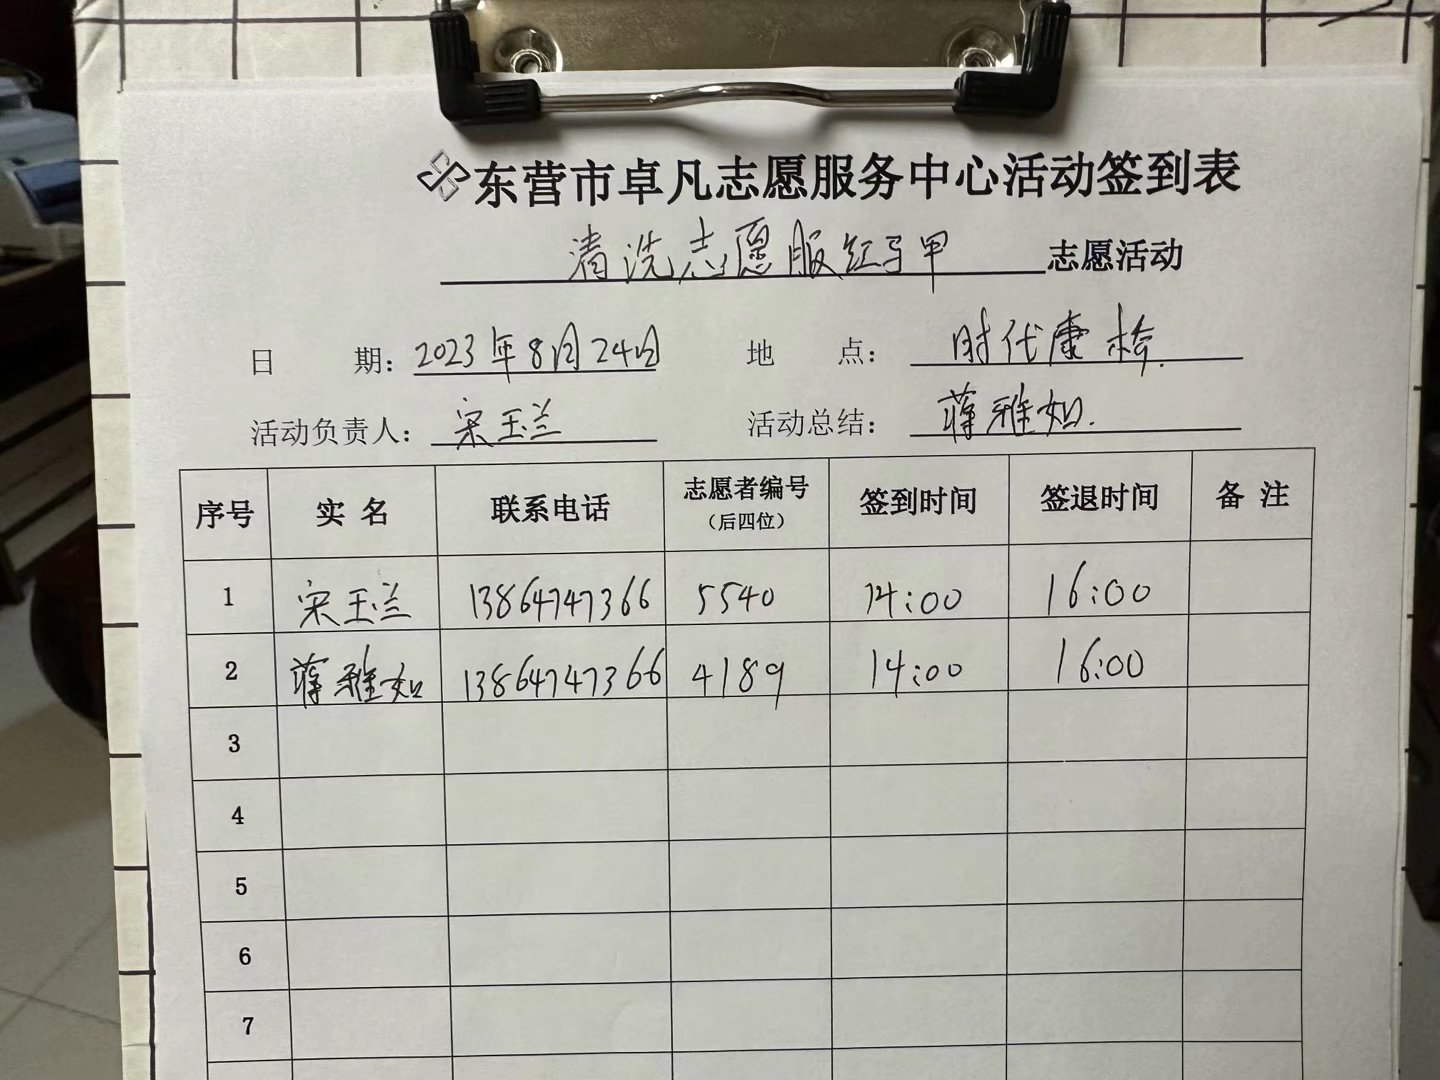 东营市卓凡志愿服务中心活动签到表
清洗志愿服红马甲 志愿活动
日 期：2023年8月24日 地 点：时代康检.
活动负责人：宋玉兰 活动总结：蒋雅如.
序号 实名 联系电话 志愿者编号（后四位） 签到时间 签退时间 备注
1 宋玉兰 13864747366 5540 14:00 16:00
2 蒋雅如 13864747366 4189 14:00 16:00
3
4
5
6
7